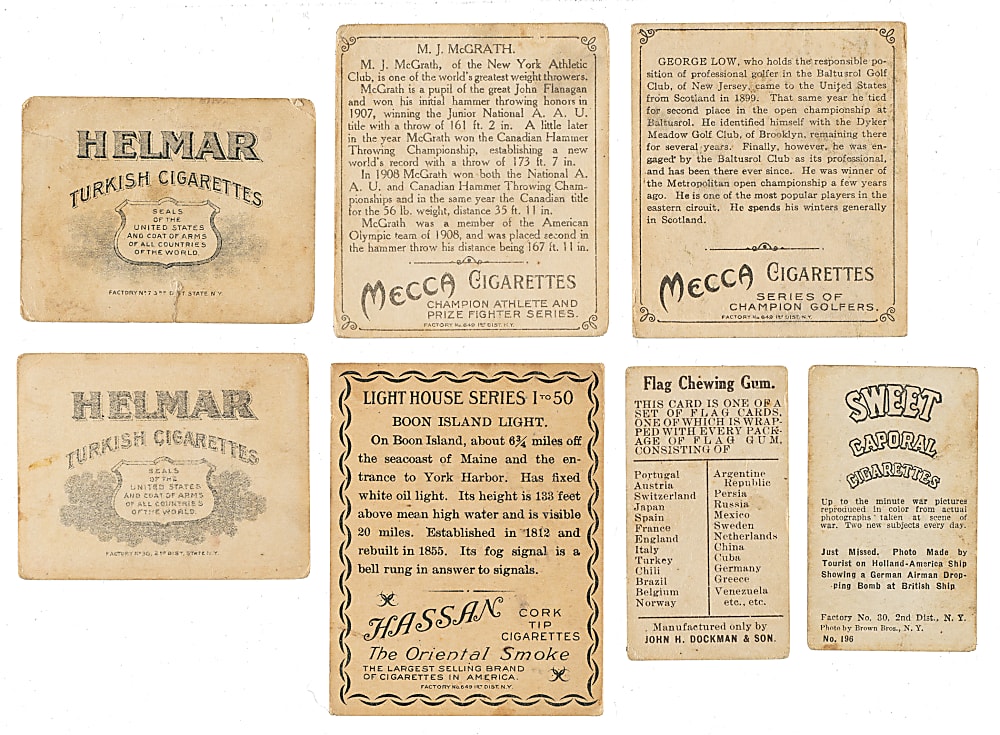 HELMAR
TURKISH CIGARETTES
SEALS
OF THE
UNITED STATES
AND COAT OF ARMS
OF ALL COUNTRIES
OF THE WORLD.
FACTORY Nº 7 3RD DIST. STATE N.Y.
M. J. McGRATH.
M. J. McGrath, of the New York Athletic
Club, is one of the world's greatest weight throwers.
McGrath is a pupil of the great John Flanagan
and won his initial hammer throwing honors in
1907, winning the Junior National A. A. U.
title with a throw of 161 ft. 2 in. A little later
in the year McGrath won the Canadian Hammer
Throwing Championship, establishing a new
world's record with a throw of 173 ft. 7 in.
In 1908 McGrath won both the National A.
A. U. and Canadian Hammer Throwing Cham-
pionships and in the same year the Canadian title
for the 56 lb. weight, distance 35 ft. 11 in.
McGrath was a member of the American
Olympic team of 1908, and was placed second in
the hammer throw his distance being 167 ft. 11 in.
MECCA CIGARETTES
CHAMPION ATHLETE AND
PRIZE FIGHTER SERIES.
FACTORY No. 649 1ST DIST. N.Y.
GEORGE LOW, who holds the responsible po-
sition of professional golfer in the Baltusrol Golf
Club, of New Jersey, came to the United States
from Scotland in 1899. That same year he tied
for second place in the open championship at
Baltusrol. He identified himself with the Dyker
Meadow Golf Club, of Brooklyn, remaining there
for several years. Finally, however, he was en-
gaged by the Baltusrol Club as its professional,
and has been there ever since. He was winner of
the Metropolitan open championship a few years
ago. He is one of the most popular players in the
eastern circuit. He spends his winters generally
in Scotland.
MECCA CIGARETTES
SERIES OF
CHAMPION GOLFERS.
FACTORY No. 649 1ST DIST. N.Y.
HELMAR
TURKISH CIGARETTES
SEALS
OF THE
UNITED STATES
AND COAT OF ARMS
OF ALL COUNTRIES
OF THE WORLD.
FACTORY Nº 30, 2ND DIST. STATE N.Y.
LIGHT HOUSE SERIES 1 TO 50
BOON ISLAND LIGHT.
On Boon Island, about 6¾ miles off
the seacoast of Maine and the en-
trance to York Harbor. Has fixed
white oil light. Its height is 133 feet
above mean high water and is visible
20 miles. Established in 1812 and
rebuilt in 1855. Its fog signal is a
bell rung in answer to signals.
HASSAN CORK
TIP
CIGARETTES
The Oriental Smoke
THE LARGEST SELLING BRAND
OF CIGARETTES IN AMERICA.
FACTORY No. 649 1ST DIST. N.Y.
Flag Chewing Gum.
THIS CARD IS ONE OF A
SET OF FLAG CARDS,
ONE OF WHICH IS WRAP-
PED WITH EVERY PACK-
AGE OF FLAG GUM,
CONSISTING OF
Portugal
Austria
Switzerland
Japan
Spain
France
England
Italy
Turkey
Chili
Brazil
Belgium
Norway
Argentine
Republic
Persia
Russia
Mexico
Sweden
Netherlands
China
Cuba
Germany
Greece
Venezuela
etc., etc.
Manufactured only by
JOHN H. DOCKMAN & SON.
SWEET
CAPORAL
CIGARETTES
Up to the minute war pictures
reproduced in color from actual
photographs taken at scene of
war. Two new subjects every day.
Just Missed. Photo Made by
Tourist on Holland-America Ship
Showing a German Airman Drop-
ping Bomb at British Ship
Factory No. 30, 2nd Dist., N. Y.
Photo by Brown Bros., N. Y.
No. 196